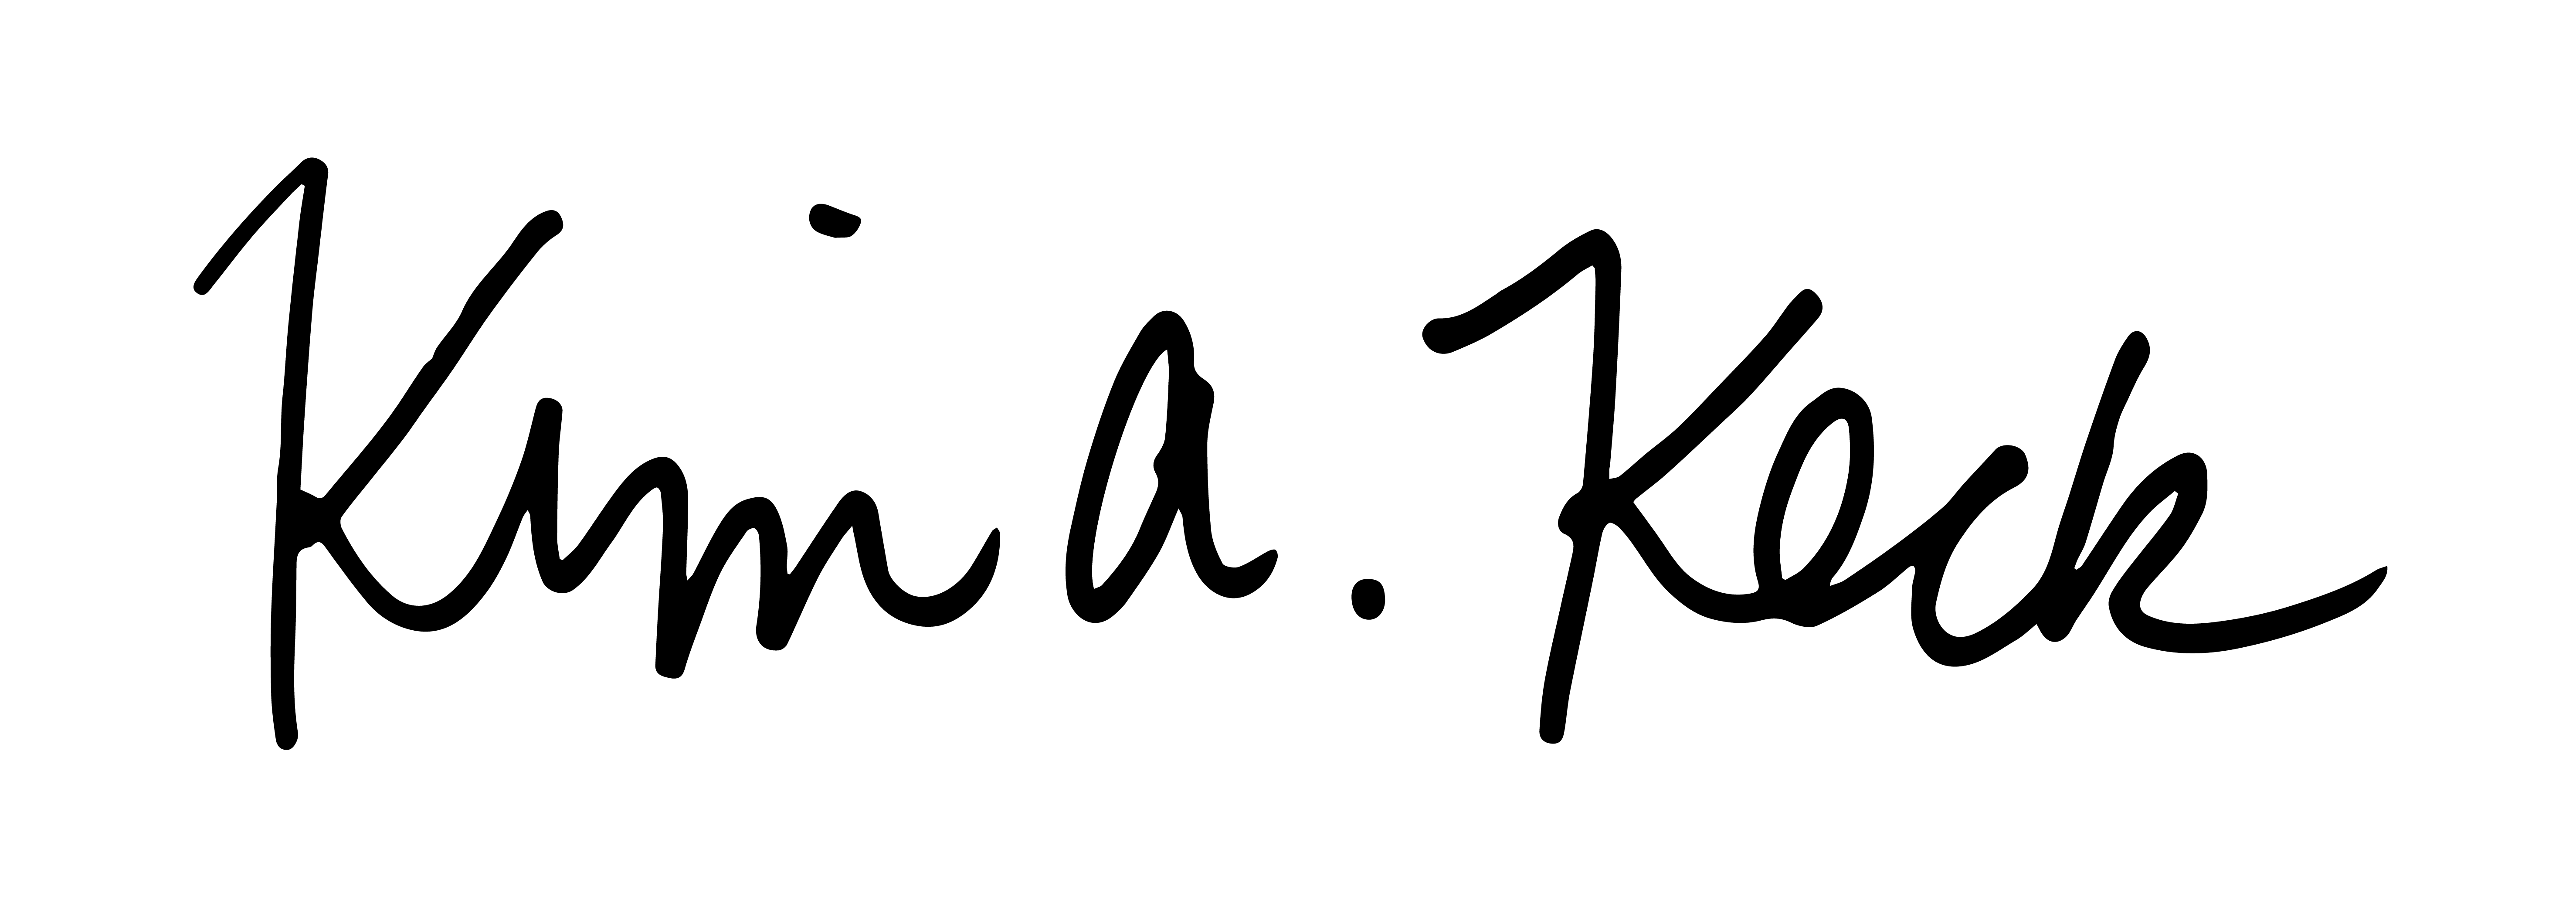 Kim a. Keck